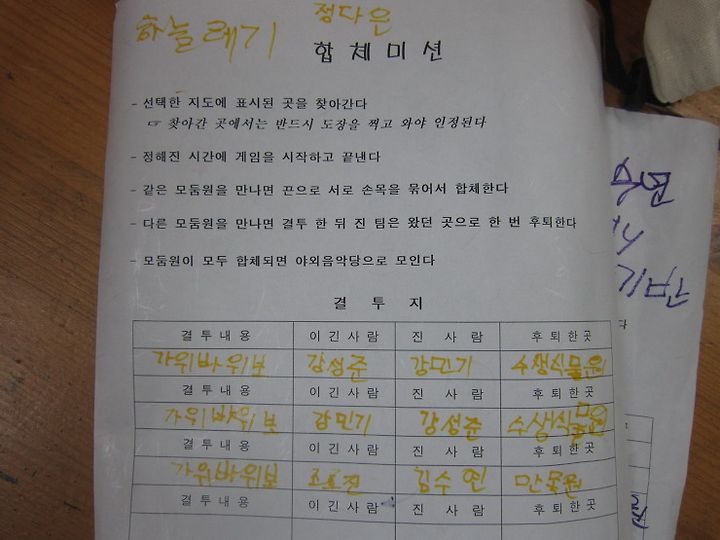 정다은
하늘레기
합체미션
- 선택한 지도에 표시된 곳을 찾아간다
☞ 찾아간 곳에서는 반드시 도장을 찍고 와야 인정된다
- 정해진 시간에 게임을 시작하고 끝낸다
- 같은 모둠원을 만나면 끈으로 서로 손목을 묶어서 합체한다
- 다른 모둠원을 만나면 결투 한 뒤 진 팀은 왔던 곳으로 한 번 후퇴한다
- 모둠원이 모두 합체되면 야외음악당으로 모인다
결 투 지
결투내용 이긴사람 진 사람 후퇴한곳
가위바위보 강성준 강민기 수생식물원
결투내용 이긴사람 진 사람 후퇴한곳
가위바위보 강민기 강성준 수생식물원
결투내용 이긴사람 진 사람 후퇴한곳
가위바위보 김수연 만목원
결투내용 이긴사람 진 사람 후퇴한곳